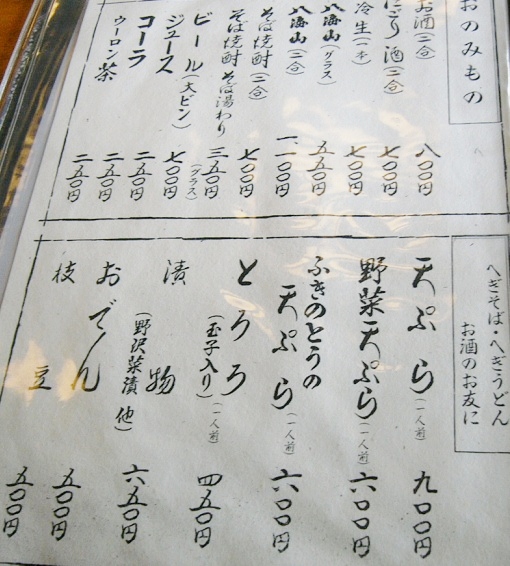 おのみもの
お酒(二合) 八〇〇円
にごり酒(二合) 七〇〇円
冷生(一本) 七〇〇円
八海山(グラス) 五五〇円
八海山(二合) 一、一〇〇円
そば焼酎(二合) 七〇〇円
そば焼酎 そば湯わり(グラス) 三五〇円
ビール(大ビン) 七〇〇円
ジュース 二五〇円
コーラ 二五〇円
ウーロン茶 二五〇円
へぎそば・へぎうどん
お酒のお友に
天ぷら(一人前) 九〇〇円
野菜天ぷら(一人前) 六〇〇円
ふきのとうの
天ぷら(一人前) 六〇〇円
とろろ
(玉子入り)(一人前) 四五〇円
漬物
(野沢菜漬 他) 六五〇円
おでん 五〇〇円
枝豆 五〇〇円